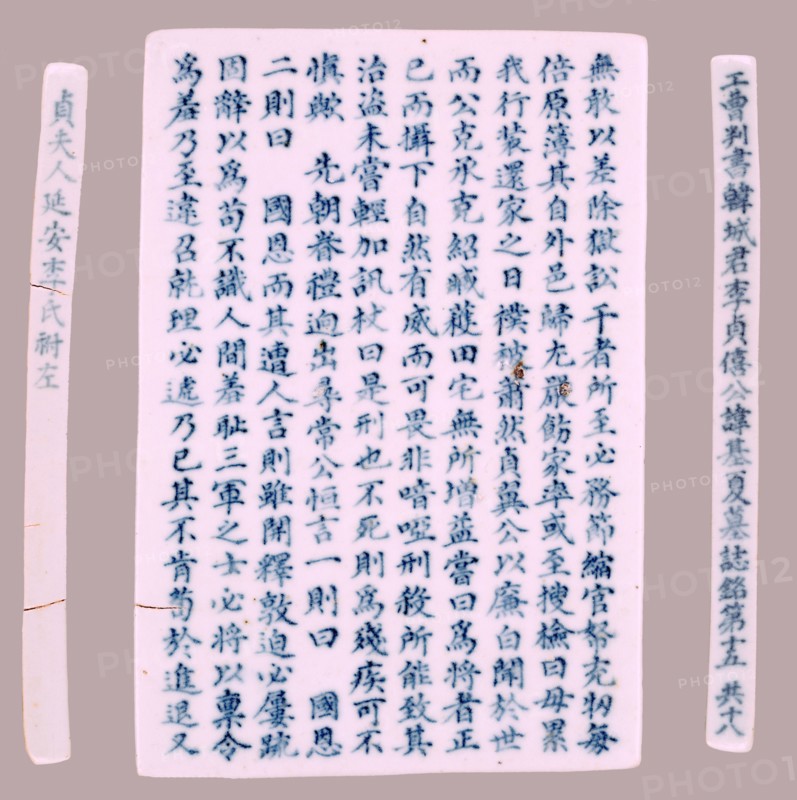 工曹判書韓城君李貞僖公諱基夏墓誌銘第十五 共十八
無敢以差除獄訟干者所至必務節縮官帑充牣每
倍原簿其自外邑歸尤嚴飭家率或至搜檢曰毋累
我行裝還家之日襆被蕭然貞翼公以廉白聞於世
而公克承克紹臧穫田宅無所增益嘗曰爲將者正
已而攝下自然有威而可畏非喑啞刑殺所能致其
治盜未嘗輕加訊杖曰是刑也不死則爲殘疾可不
愼歟 先朝眷禮逈出尋常公恒言一則曰 國恩
二則曰 國恩而其遭人言則雖開釋敦迫必屢疏
固辭以爲苟不識人間羞恥三軍之士必將以稟令
爲羞乃至違召就理必遞乃已其不肯苟於進退又
貞夫人延安李氏祔左
PHOTO12